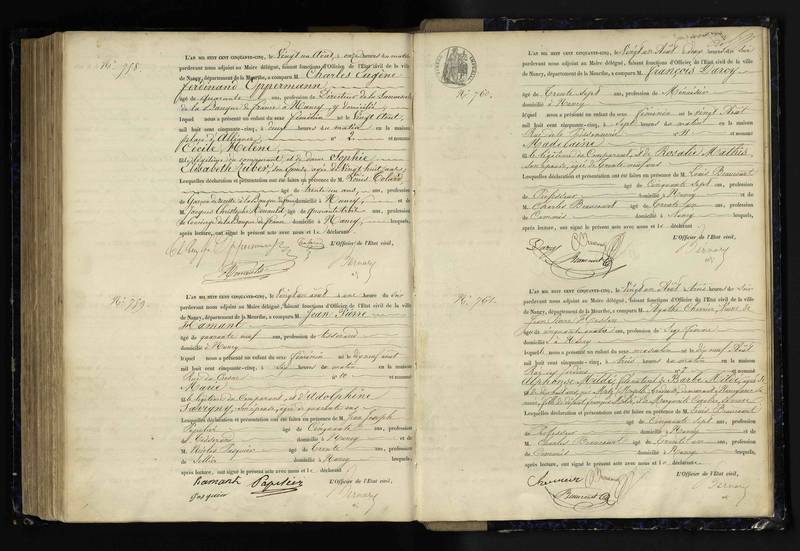 N.º 758.
L'AN MIL HUIT CENT CINQUANTE-CINQ, le Vingt un Août, à onze heures du matin
pardevant nous adjoint au Maire délégué, faisant fonctions d'Officier de l'Etat civil de la ville
de Nancy, département de la Meurthe, a comparu M. Charles Eugène
Ferdinand Oppermann
âgé de quarante ans, profession de Directeur de la Succursale
de la Banque de france à Nancy, y domicilié
lequel nous a présenté un enfant du sexe féminin né le Vingt Août,
mil huit cent cinquante-cinq, à deux heures du matin en la maison
place d'Alliance n° 2 et nommé
Cécile Hélène
fille légitime du comparant et de dame Sophie
Elisabeth Huber, son épouse, âgée de Vingt huit ans,
Lesquelles déclaration et présentation ont été faites en présence de M. Louis Colard
âgé de trente un ans, profession
de Garçon de recette de la Banque de france domicilié à Nancy, et de
M. Jacques Christophe âgé de quarante trois ans, profession
de Concierge de la Banque de france domicilié à Nancy lesquels,
après lecture, ont signé le présent acte avec nous et le déclarant
Oppermann
L'Officier de l'Etat civil,
Bernard
N.º 759.
L'AN MIL HUIT CENT CINQUANTE-CINQ, le Vingt un Août à une heure du soir
pardevant nous adjoint au Maire délégué, faisant fonctions d'Officier de l'Etat civil de la ville
de Nancy, département de la Meurthe, a comparu M. Jean Pierre
Hamant
âgé de quarante neuf ans, profession de tisserand
domicilié à Nancy
lequel nous a présenté un enfant du sexe féminin né le dix neuf août
mil huit cent cinquante-cinq, à six heures du matin en la maison
Rue n° 10 et nommé
Marie
fille légitime du Comparant, et d'Adolphine
Savigny, son épouse, âgée de quarante ans
Lesquelles déclaration et présentation ont été faites en présence de M. Jean Joseph
Papelier âgé de Cinquante ans, profession
domicilié à Nancy et de
M. Nicolas Pasquier âgé de trente ans, profession
de Sellier domicilié à Nancy lesquels,
après lecture, ont signé le présent acte avec nous et le déclarant
hamant Papelier
Pasquier
L'Officier de l'Etat civil,
Bernard
N.º 760.
L'AN MIL HUIT CENT CINQUANTE-CINQ, le Vingt un Août à heures du soir
pardevant nous adjoint au Maire délégué, faisant fonctions d'Officier de l'Etat civil de la ville
de Nancy, département de la Meurthe, a comparu M. françois Daroy
âgé de Trente Sept ans, profession de Menuisier
domicilié à Nancy
lequel nous a présenté un enfant du sexe féminin né le vingt Août
mil huit cent cinquante-cinq, à Sept heures du matin en la maison
Rue de la n° 11 et nommé
Madelaine
fille légitime du Comparant, et de Rosalie Mathis
son épouse, âgée de trente neuf ans
Lesquelles déclaration et présentation ont été faites en présence de M. Louis Beaucourt
âgé de Cinquante Sept ans, profession
de Professeur domicilié à Nancy et de
M. Charles Beaucourt âgé de trente un ans, profession
de Commis domicilié à Nancy lesquels,
après lecture, ont signé le présent acte avec nous et le déclarant
Daroy
Beaucourt
L'Officier de l'Etat civil,
Bernard
N.º 761.
L'AN MIL HUIT CENT CINQUANTE-CINQ, le Vingt un Août à trois heures du soir
pardevant nous adjoint au Maire délégué, faisant fonctions d'Officier de l'Etat civil de la ville
de Nancy, département de la Meurthe, a comparu Agathe Veuve de
Jean Pierre
âgée de cinquante ans, profession de Sage femme
domicilié à Nancy
lequel nous a présenté un enfant du sexe masculin né le dix neuf Août
mil huit cent cinquante-cinq, à trois heures du matin en la maison
n° 7 et nommé
Alphonse Milde, fils naturel de Barbe Milde, âgée de
Lesquelles déclaration et présentation ont été faites en présence de M. Louis Beaucourt
âgé de Cinquante Sept ans, profession
de Professeur domicilié à Nancy et de
M. Charles Beaucourt âgé de trente un ans, profession
de Commis domicilié à Nancy lesquels,
après lecture, ont signé le présent acte avec nous et le déclarant
Beaucourt
L'Officier de l'Etat civil,
Bernard